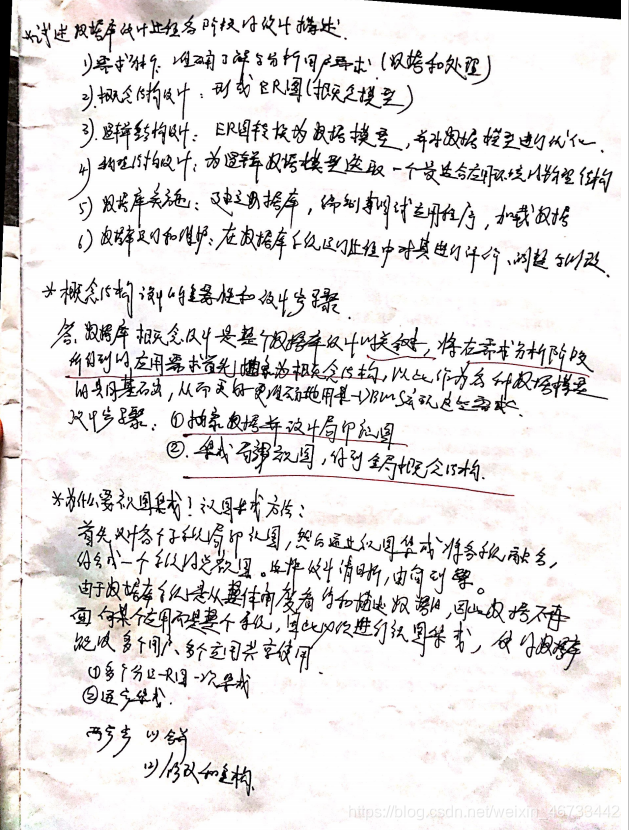 *试述数据库设计过程各阶段的设计描述.
1)需求分析：准确了解与分析用户需求（数据和处理）
2)概念结构设计：形成ER图(概念模型)
3)逻辑结构设计：ER图转换为数据模型，并对数据模型进行优化.
4)物理结构设计：为逻辑数据模型选取一个最适合应用环境的物理结构
5)数据库实施：建立数据库，编制与调试应用程序，加载数据
6)数据库运行和维护：在数据库系统运行过程中对其进行评价、调整与修改.
*概念结构设计的重要性和设计步骤.
答.数据库概念设计是整个数据库设计的关键，将在需求分析阶段
所得到的应用需求首先抽象为概念结构，以此作为各种数据模型
的共同基础，从而更好更准确地用某一DBMS实现这些需求.
设计步骤：①抽象数据并设计局部视图
②.集成局部视图，得到全局概念结构.
*为什么要视图集成！视图集成方法：
首先设计各个子系统局部视图，然后通过视图集成将各系统融合，
综合成一个系统的总视图。
由于数据库系统是从整体角度看待和描述数据的，因此数据不再
面向某个应用而是整个系统，因此必须进行视图集成，使得数据库
能被多个用户、多个应用共享使用.
①多个分E-R图一次集成
②逐步集成.
两步 (1)合并
(2)修改和重构.
https://blog.csdn.net/weixin_46738442